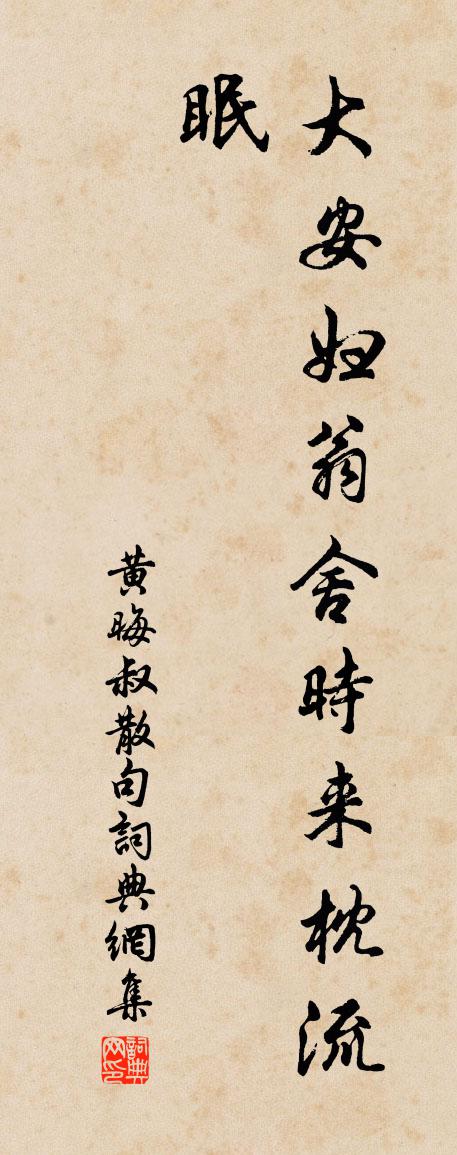 大安妇翁舍時来枕流
眠
黄晦叔散句詞典網集
詞典
网印